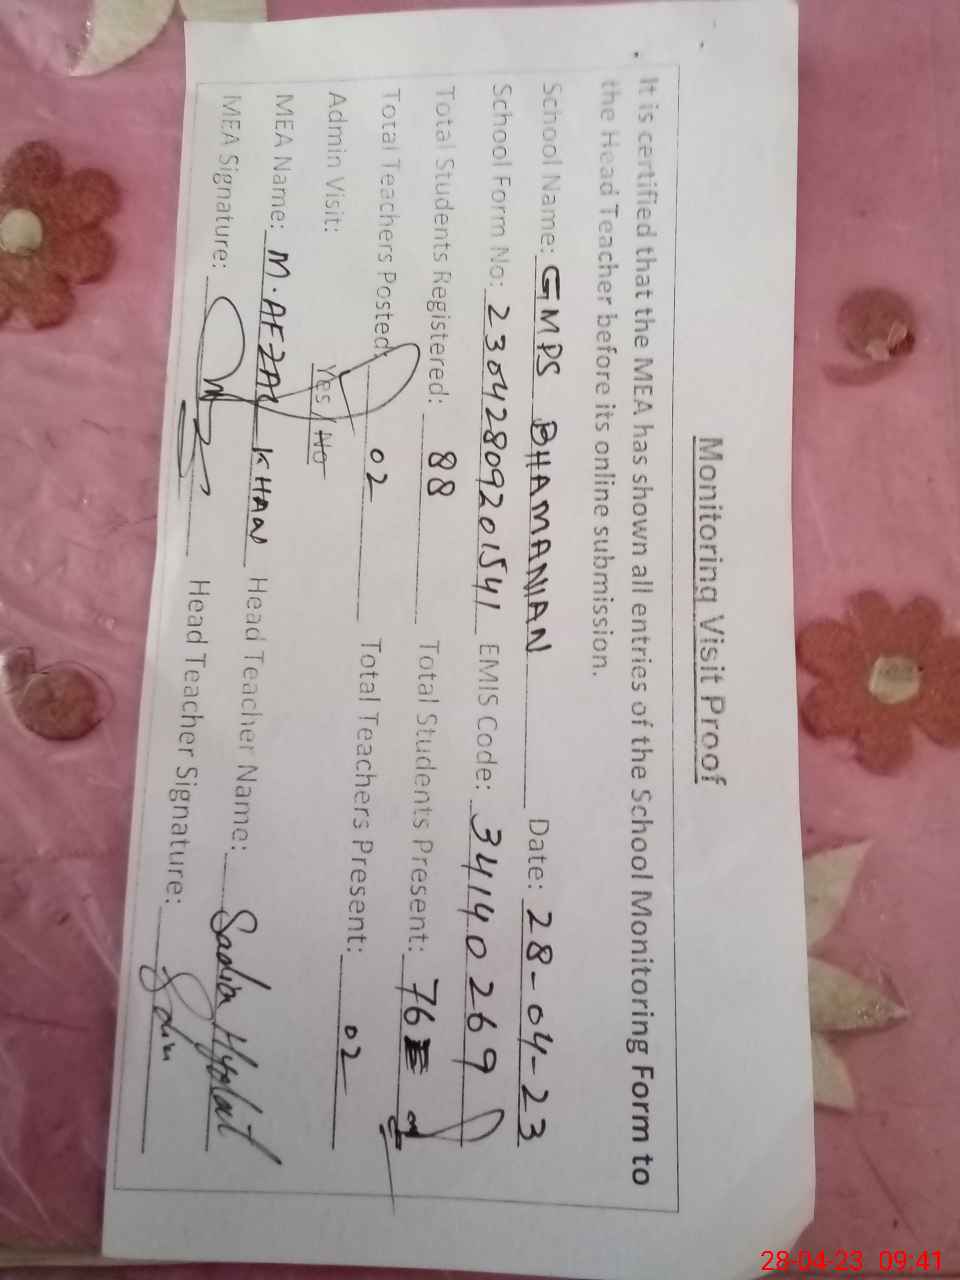 Monitoring Visit Proof
It is certified that the MEA has shown all entries of the School Monitoring Form to
the Head Teacher before its online submission.
School Name: GMPS BHAMANIAN Date: 28-04-23
School Form No: 23042809201541 EMIS Code: 34140269
Total Students Registered: 88 Total Students Present: 76
Total Teachers Posted: 02 Total Teachers Present: 02
Admin Visit: Yes / No
MEA Name: M.AFZAL KHAN Head Teacher Name: Sadia
MEA Signature: Head Teacher Signature:
28-04-23 09:41